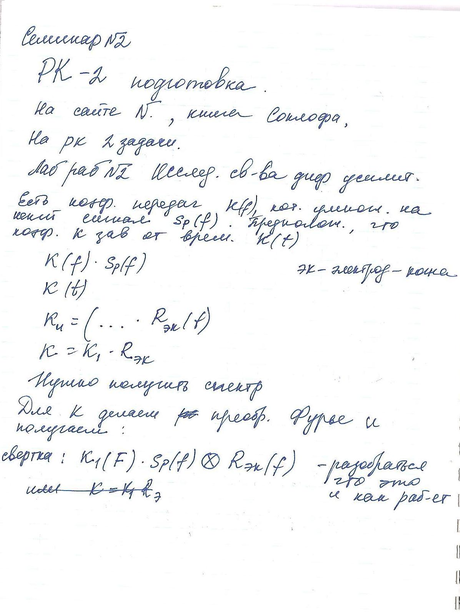 Семинар №2
РК-2 подготовка.
На сайте N., книга Соклофа,
На рк 2 задачи.
Лаб раб №2 Исслед. св-ва диф усилит.
Есть коэф. передач K(f), кот. умнож. на
некий сигнал Sp(f). Предполож., что
коэф. К зав от врем. K(t)
K(f)·Sp(f)
эк - электрод - кожа
K(t)
Kн = (.... · Rэк(f)
K = K1 · Rэк
Нужно получить спектр
Для К делаем преобр. Фурье и
получаем:
свертка: K1(F)·Sp(f) ⊗ Rэк(f) - разобраться
что это
или K = K1 Rэ
и как раб-ет